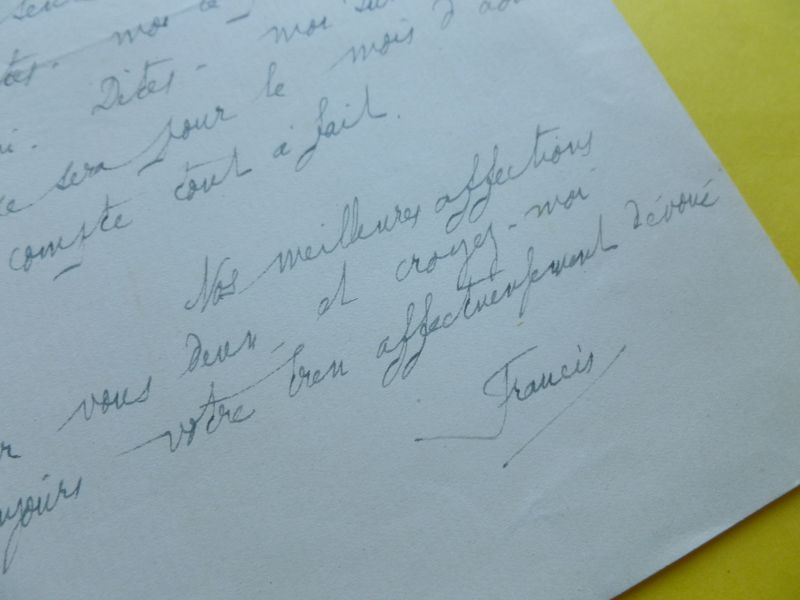 moi
Dites-moi
sera pour le mois d'
compte tout à fait.
Nos meilleures affections
vous deux et croyez-moi
votre bien affectueusement dévoué
Francis